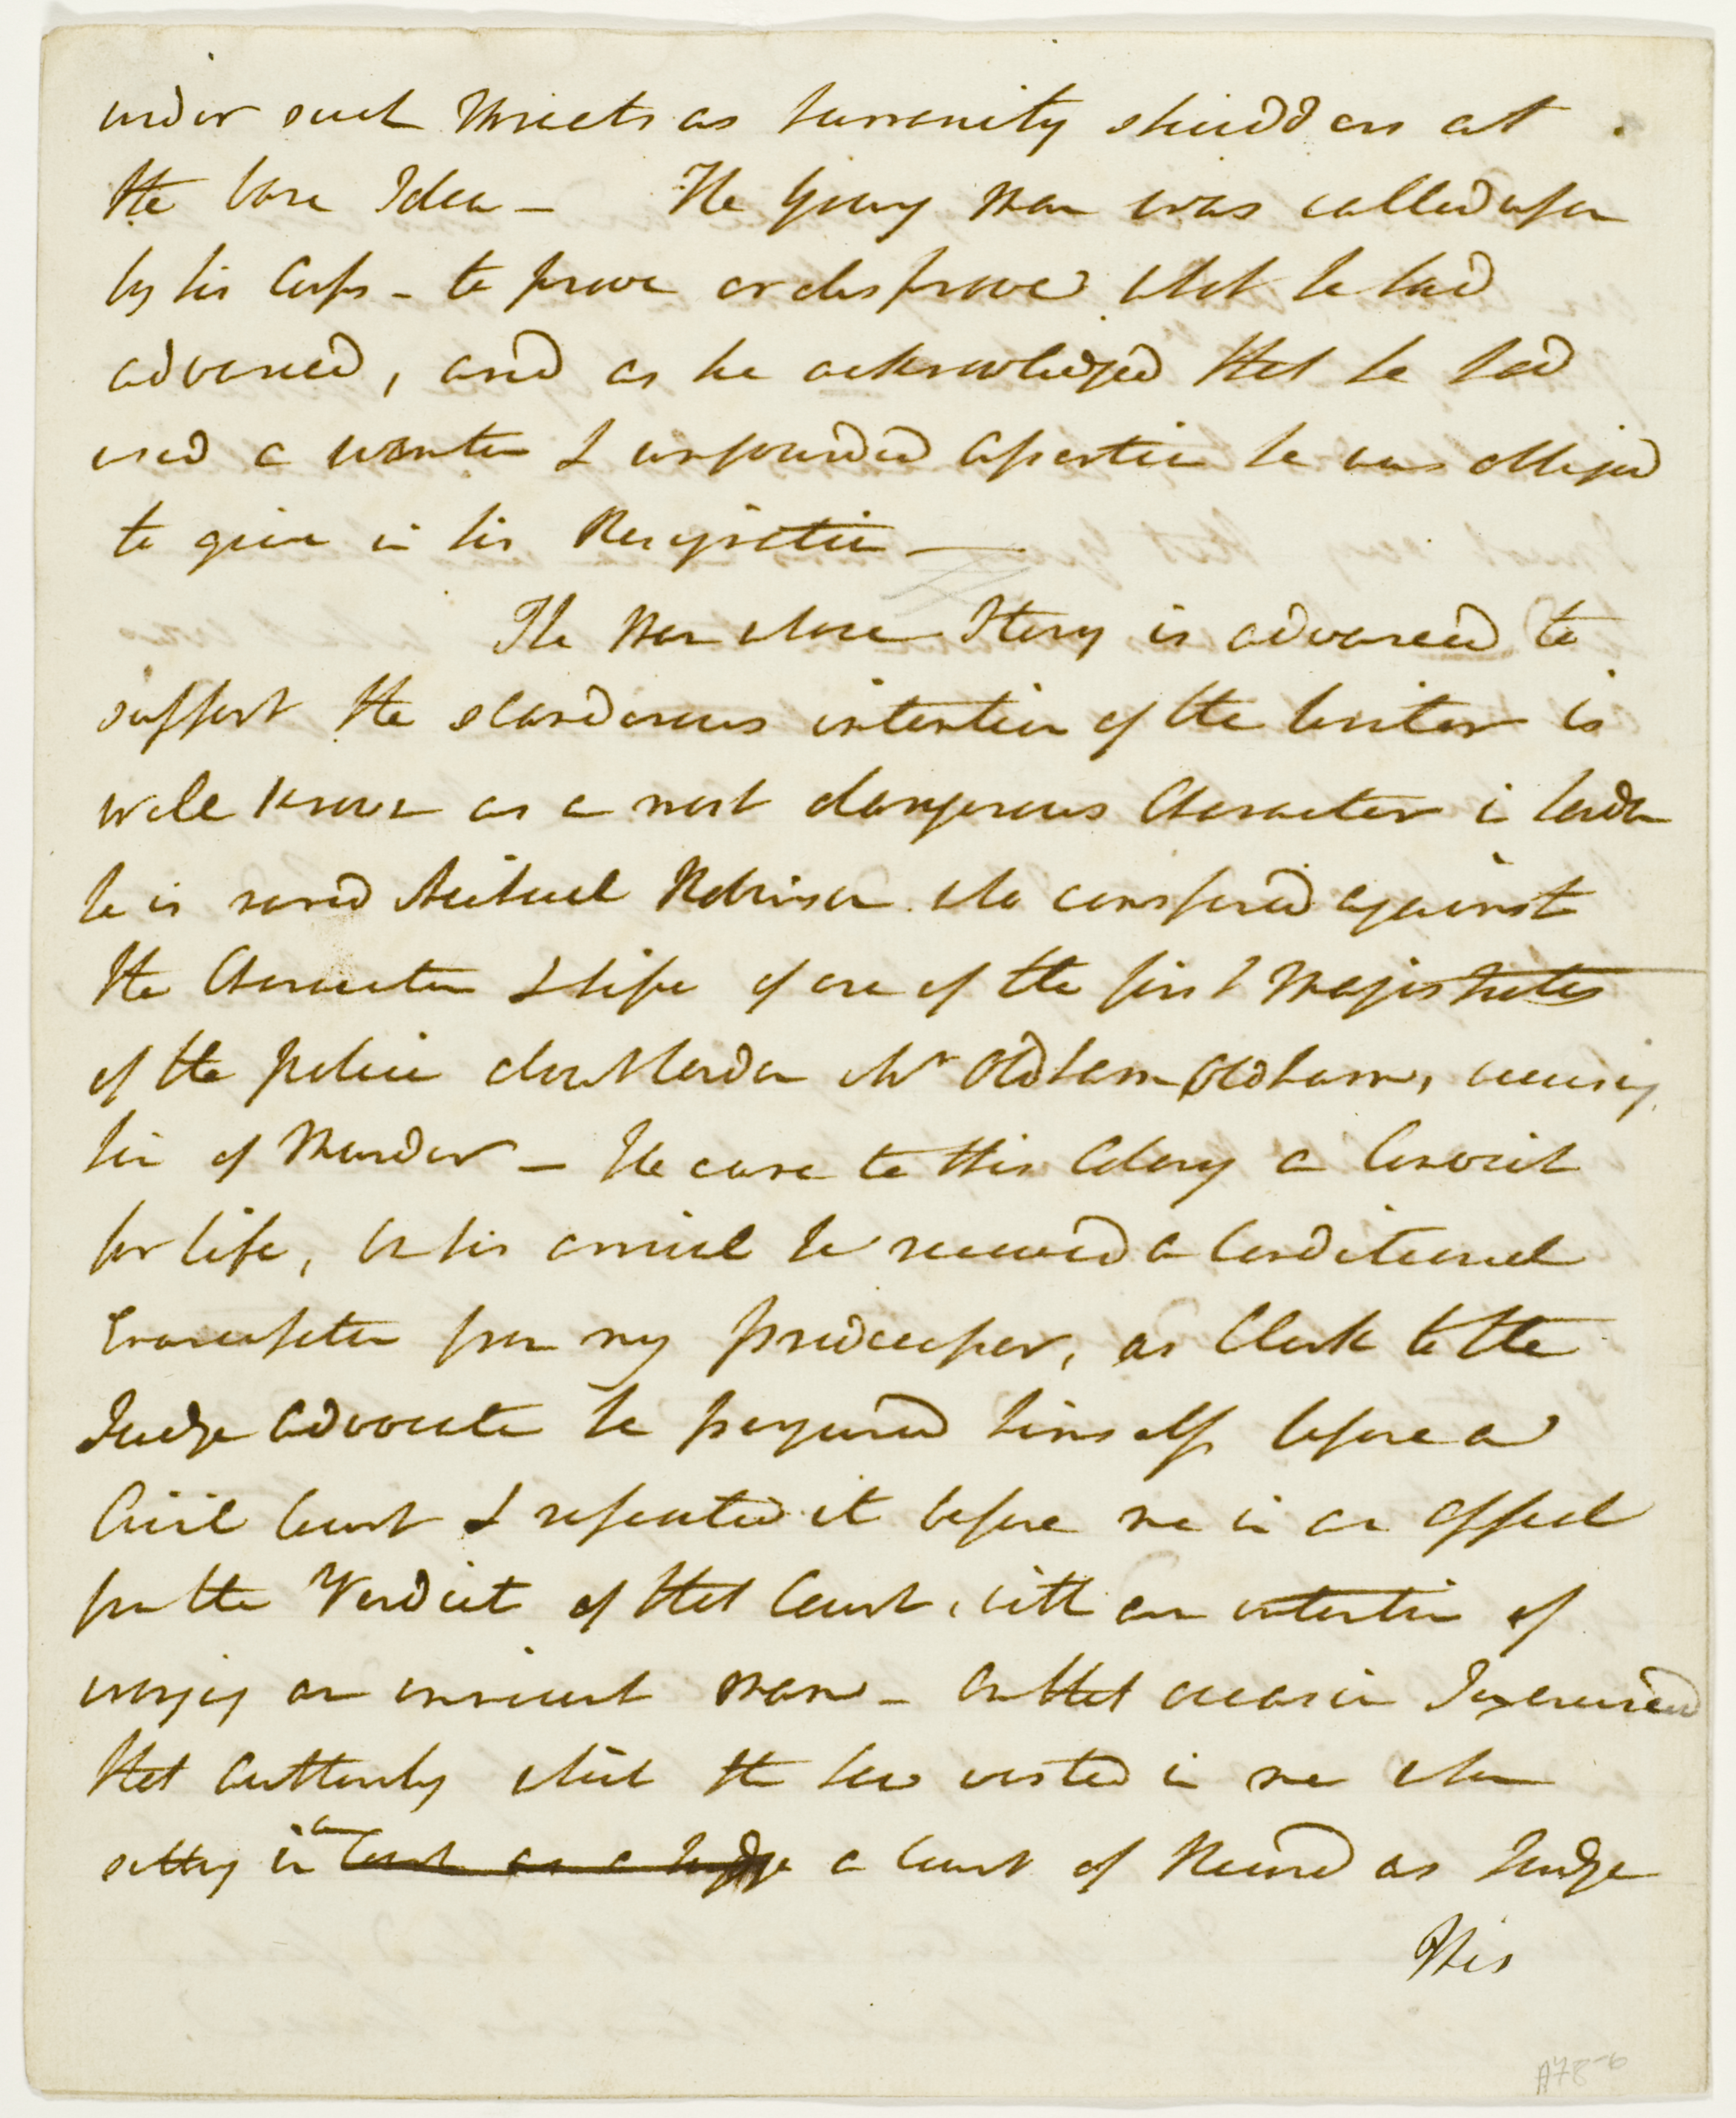 under such threats as humanity shudders at
the bare Idea – The Young Man was called upon
by his Corps – to prove or disprove what he had
advanced, and as he acknowledged that he had
used a wanton & unfounded assertion he was obliged
to give in his Resignation —
The Man whose Story is advanced to
support the slanderous intention of the Writer is
well known as a most dangerous Character in London
he is named Michael Robinson who conspired against
the Character & life of one of the first Magistrates
of the police about London Mr Oldham Oldham, accusing
him of Murder – He came to this Colony a Convict
for life, On his arrival he received a Conditional
Emancipation from my predecessor, as Clerk to the
Judge Advocate he perjured himself before a
Civil Court & repeated it before me in an Appeal
from the Verdict of that Court, with an intention of
wronging an innocent man – On that occasion I exercised
that Authority which the Law vested in me when
sitting in Court as a Judge a Court of Record as Judge
This
A78-6